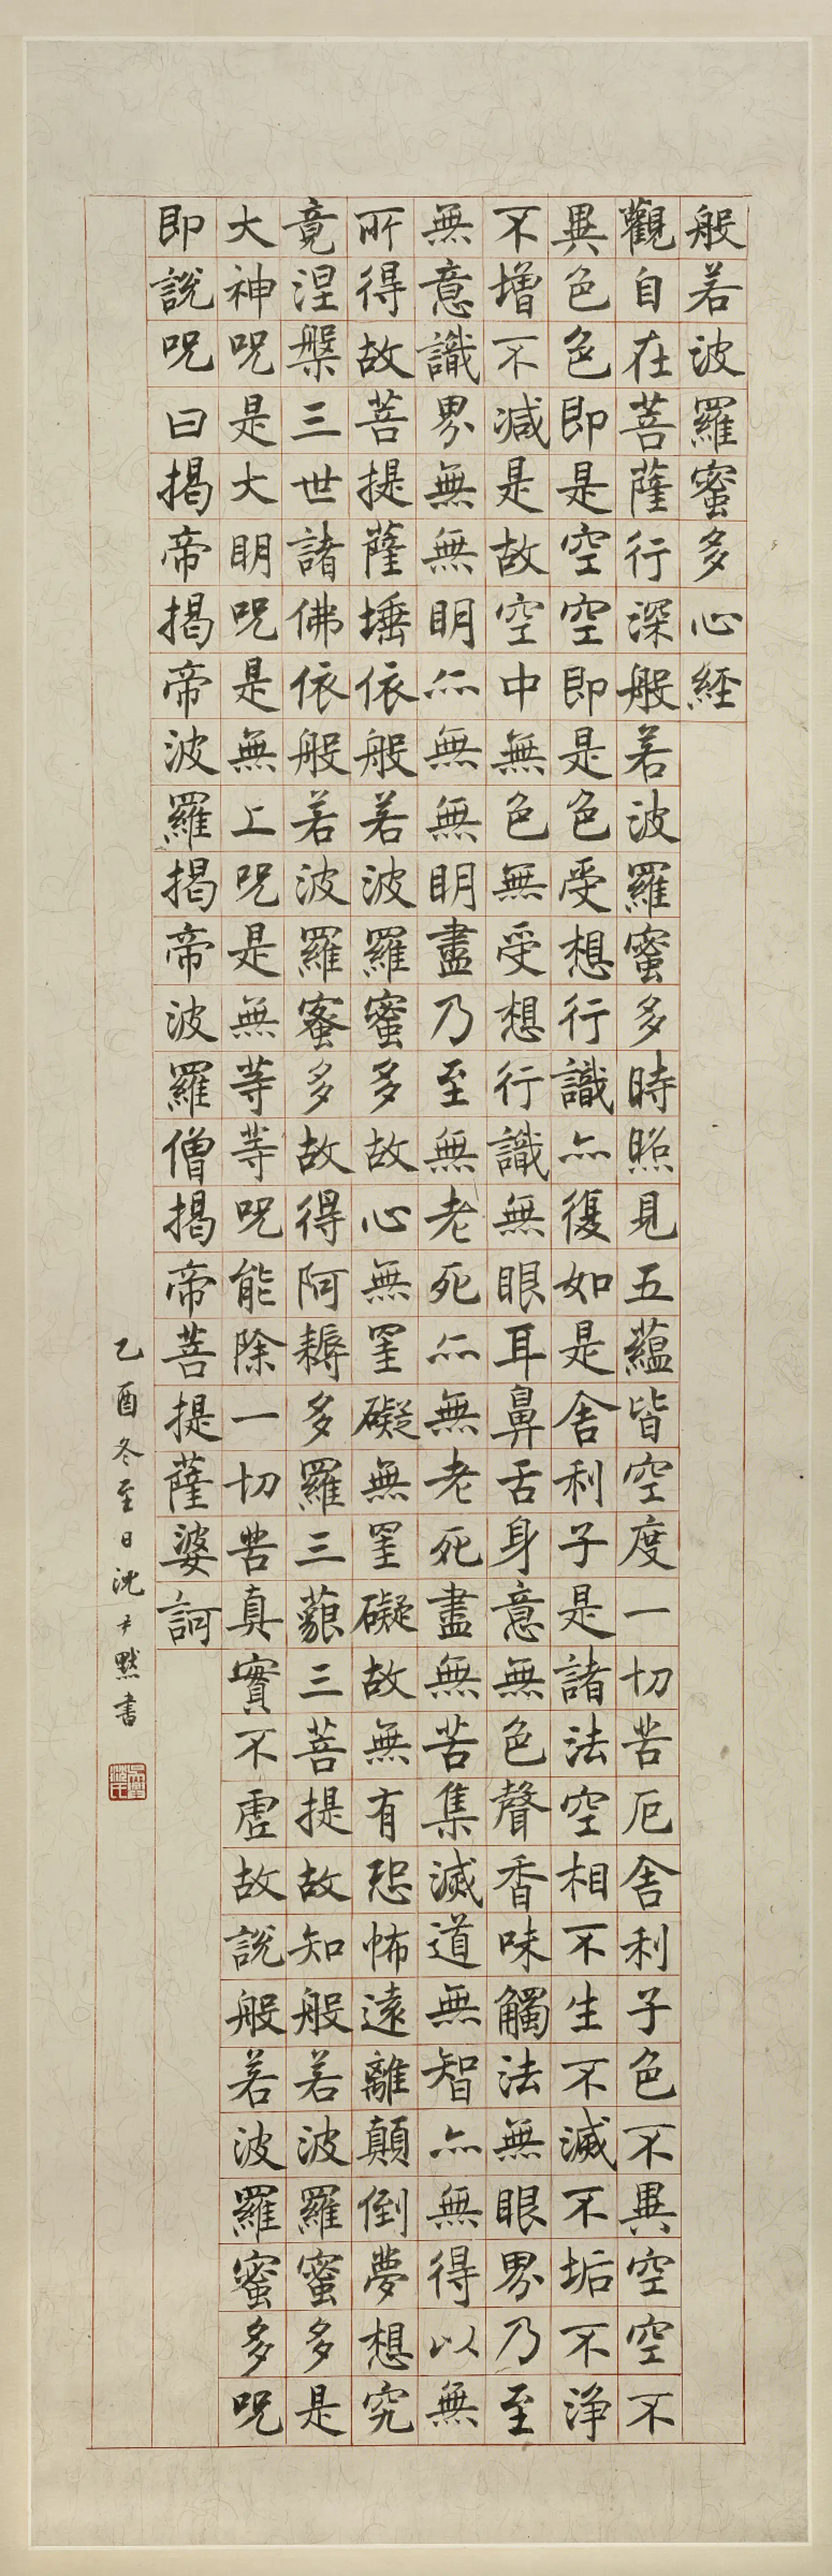 般若波羅蜜多心經
觀自在菩薩行深般若波羅蜜多時照見五蘊皆空度一切苦厄舍利子色不異空空不
異色色即是空空即是色受想行識亦復如是舍利子是諸法空相不生不滅不垢不淨
不增不減是故空中無色無受想行識無眼耳鼻舌身意無色聲香味觸法無眼界乃至
無意識界無無明亦無無明盡乃至無老死亦無老死盡無苦集滅道無智亦無得以無
所得故菩提薩埵依般若波羅蜜多故心無罣礙無罣礙故無有恐怖遠離顛倒夢想究
竟涅槃三世諸佛依般若波羅蜜多故得阿耨多羅三藐三菩提故知般若波羅蜜多是
大神呪是大明呪是無上呪是無等等呪能除一切苦真實不虛故說般若波羅蜜多呪
即說呪曰揭帝揭帝波羅揭帝波羅僧揭帝菩提薩婆訶
乙酉冬至日沈尹默書
吳興沈氏